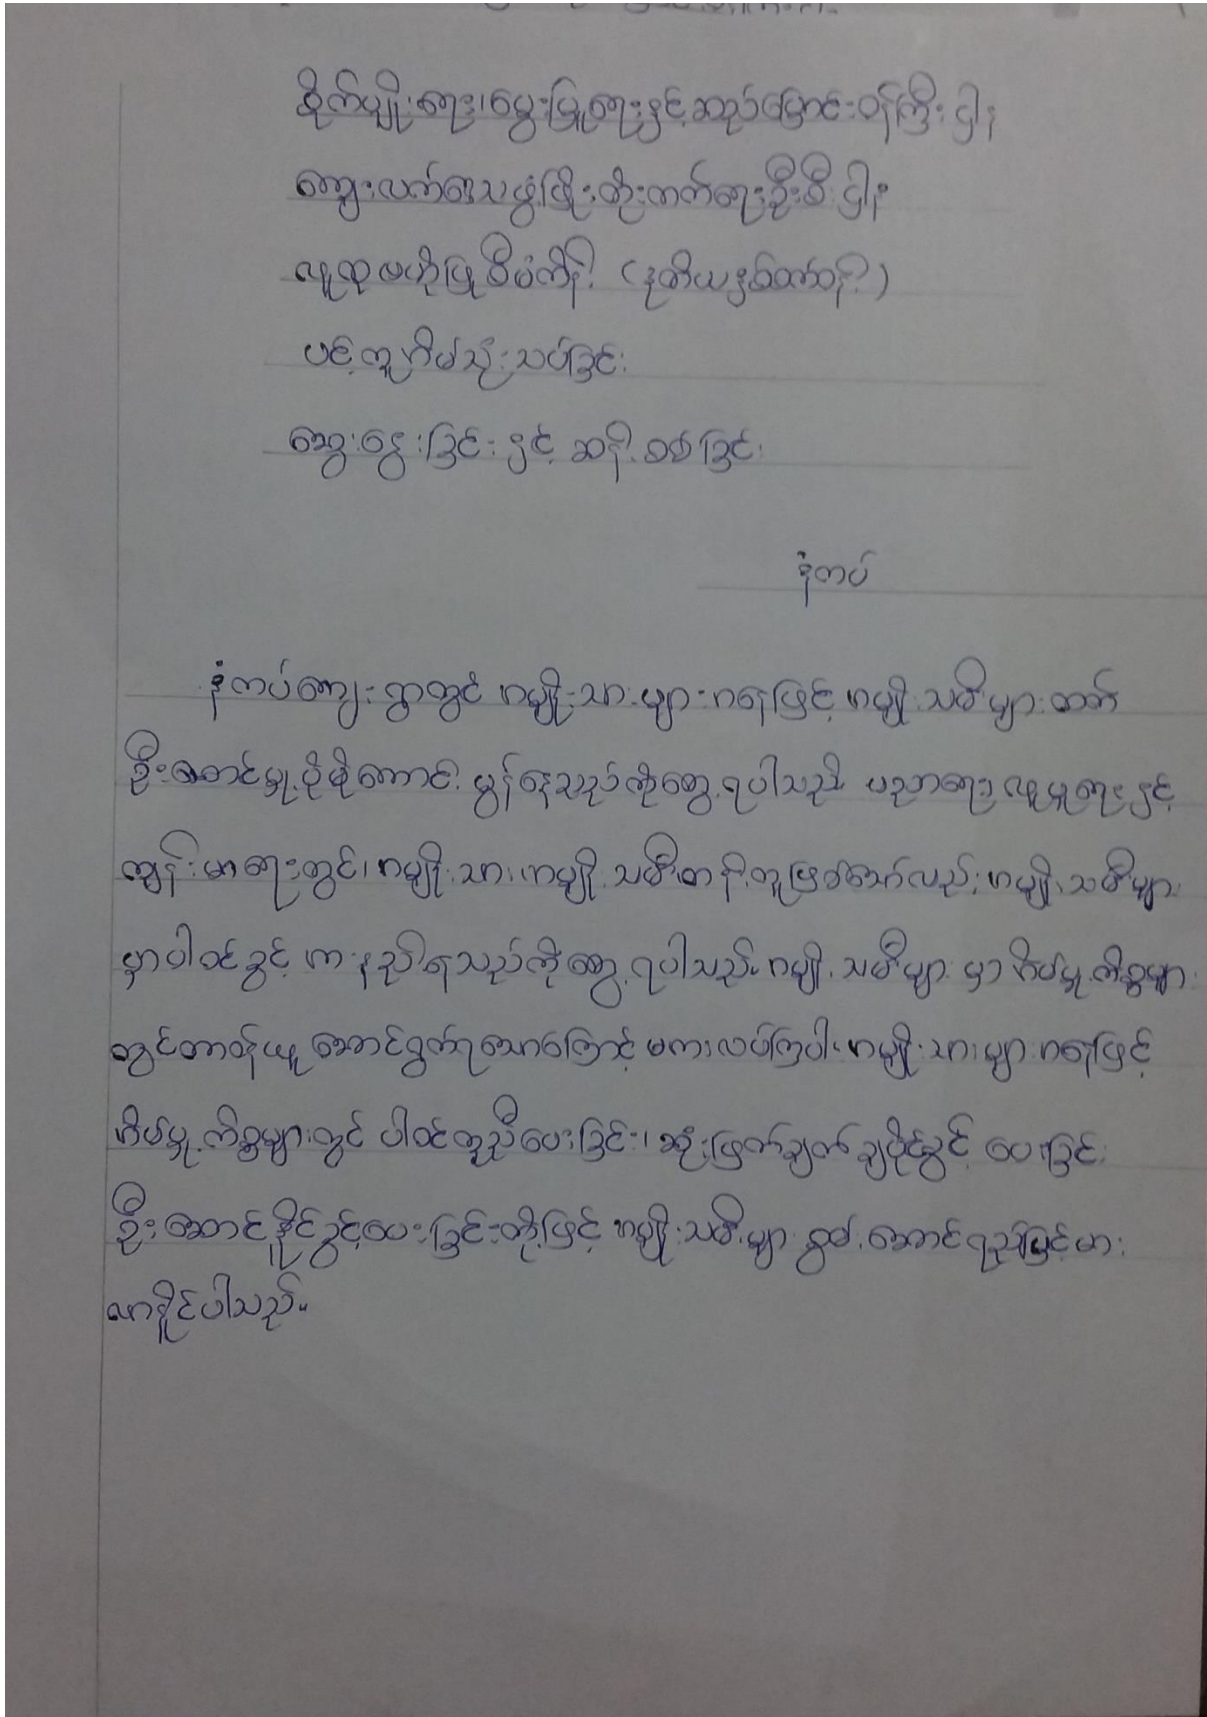 စိုက်ပျိုးရေး၊မွေးမြူရေးနှင့်ဆည်မြောင်းဝန်ကြီးဌာန
ကျေးလက်ဒေသဖွံ့ဖြိုးတိုးတက်ရေးဦးစီးဌါန
လူထုဗဟိုပြုစီမံကိန်း (ဒုတိယနှစ်ပတ်ဝန်း)
ပင့်ကူအိမ်သုံးသပ်ခြင်း
ဆွေးနွေးခြင်းနှင့် ဆန်းစစ်ခြင်း
နံကပ်
နံကပ်ကျေးရွာတွင် အမျိုးသားများအနေဖြင့် အမျိုးသမီးများထက်
ဦးဆောင်မှုပိုမိုကောင်းမွန်နေသည်ကိုတွေ့ရပါသည်။ ပညာရေး၊ လူမှုရေးနှင့်
ကျန်းမာရေးတွင်၊ အမျိုးသား၊ အမျိုးသမီးတန်းတူဖြစ်သော်လည်း အမျိုးသမီးများ
မှာပါဝင်ခွင့် အားနည်းရသည်ကိုတွေ့ရပါသည်။ အမျိုးသမီးများ မှာ အိမ်မှုကိစ္စများ
တွင်တာဝန်ယူ ဆောင်ရွက်ရသောကြောင့် မအားလပ်ကြပါ။ အမျိုးသားများအနေဖြင့်
အိမ်မှုကိစ္စများတွင် ပါဝင်ကူညီပေးခြင်း၊ ဆုံးဖြတ်ချက်ချပိုင်ခွင့် ပေးခြင်း
ဦးဆောင်နိုင်ခွင့်ပေးခြင်းတို့ဖြင့် အမျိုးသမီးများ စွမ်းဆောင်ရည်မြင့်မား
လာနိုင်ပါသည်။